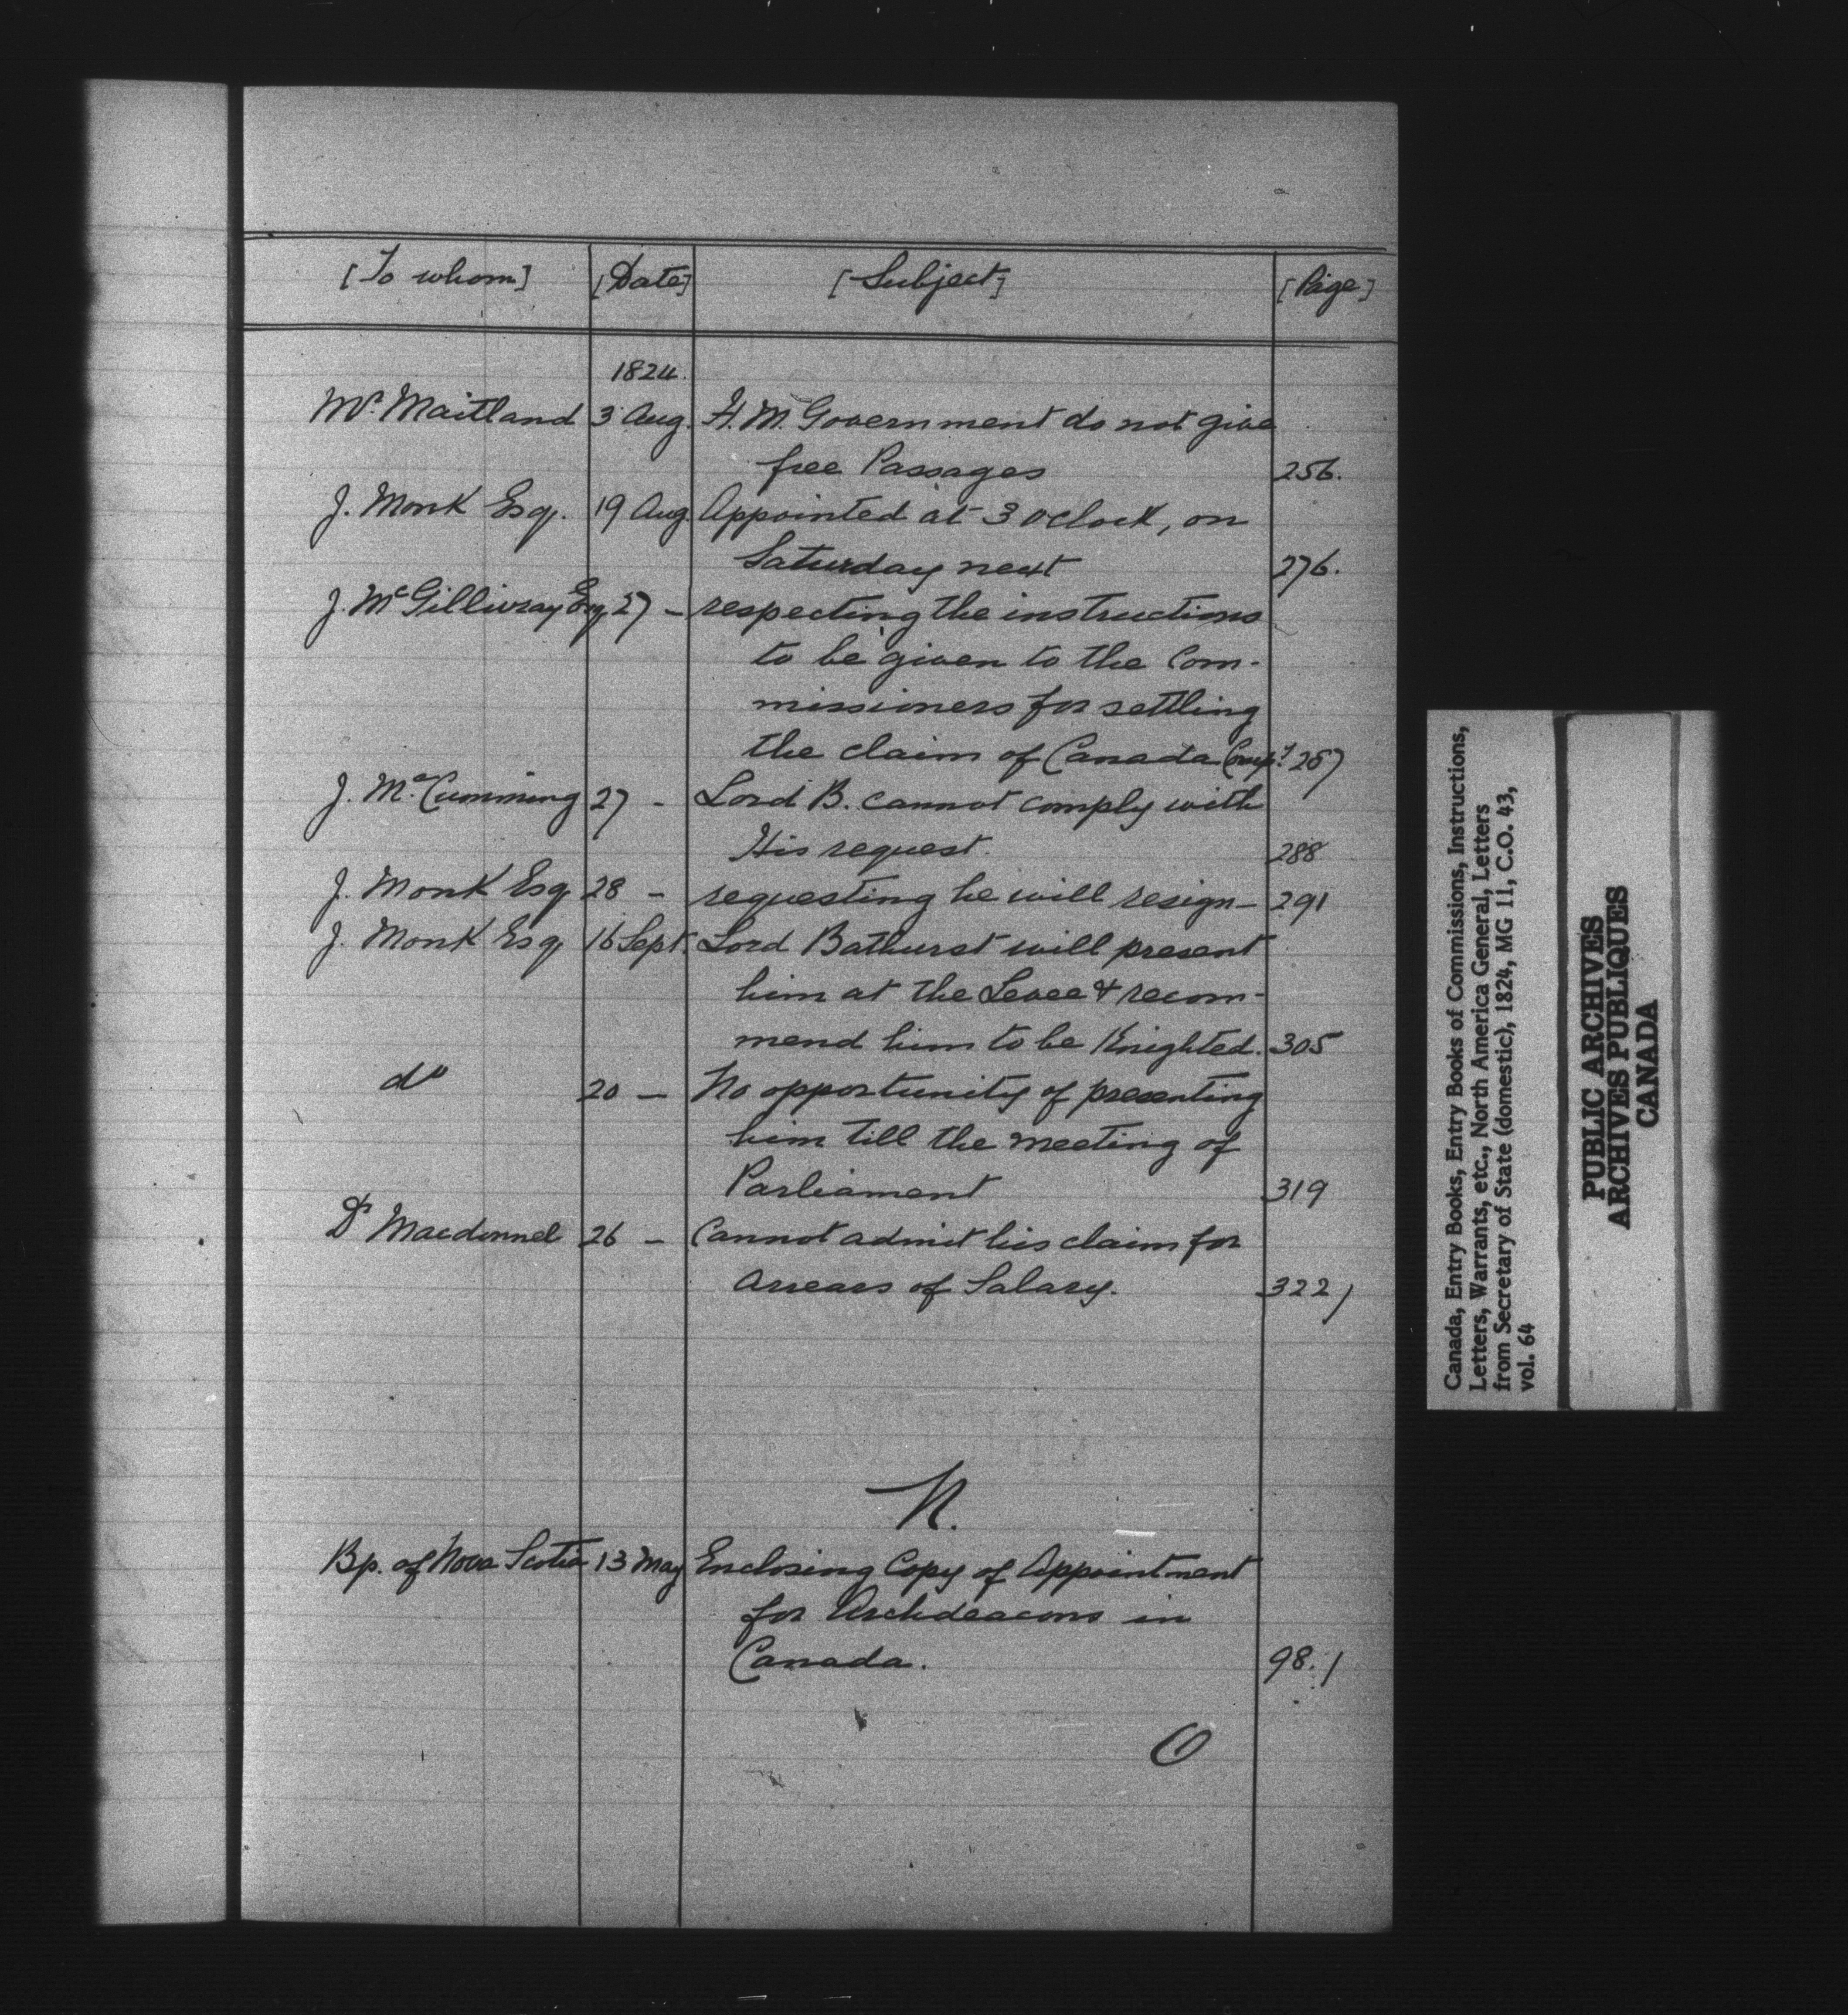 [To whom] [Date] [Subject] [Page]
1824.
Mr. Maitland 3 Aug. H. M. Government do not give
free Passages 256.
J. Monk Esq. 19 Aug. Appointed at 3 oclock, on
Saturday next 276.
J. McGillivray Esq 27 - respecting the instructions
to be given to the Com-
missioners for settling
the claim of Canada Compy 287
J. Mc.Cumming 27 - Lord B. cannot comply with
His request. 288
J. Monk Esq 28 - requesting he will resign - 291
J. Monk Esq 16 Sept. Lord Bathurst will present
him at the Levee & recom-
mend him to be Knighted. 305
do 20 - No opportunity of presenting
him till the meeting of
Parliament 319
Dr Macdonnel 26 - Cannot admit his claim for
Arrears of Salary. 322 /
N.
Bp. of Nova Scotia 13 May Enclosing Copy of Appointment
for Archdeacons in
Canada. 98. /
O
Canada, Entry Books, Entry Books of Commissions, Instructions,
Letters, Warrants, etc., North America General, Letters
from Secretary of State (domestic), 1824, MG 11, C.O. 43,
vol. 64
PUBLIC ARCHIVES
ARCHIVES PUBLIQUES
CANADA